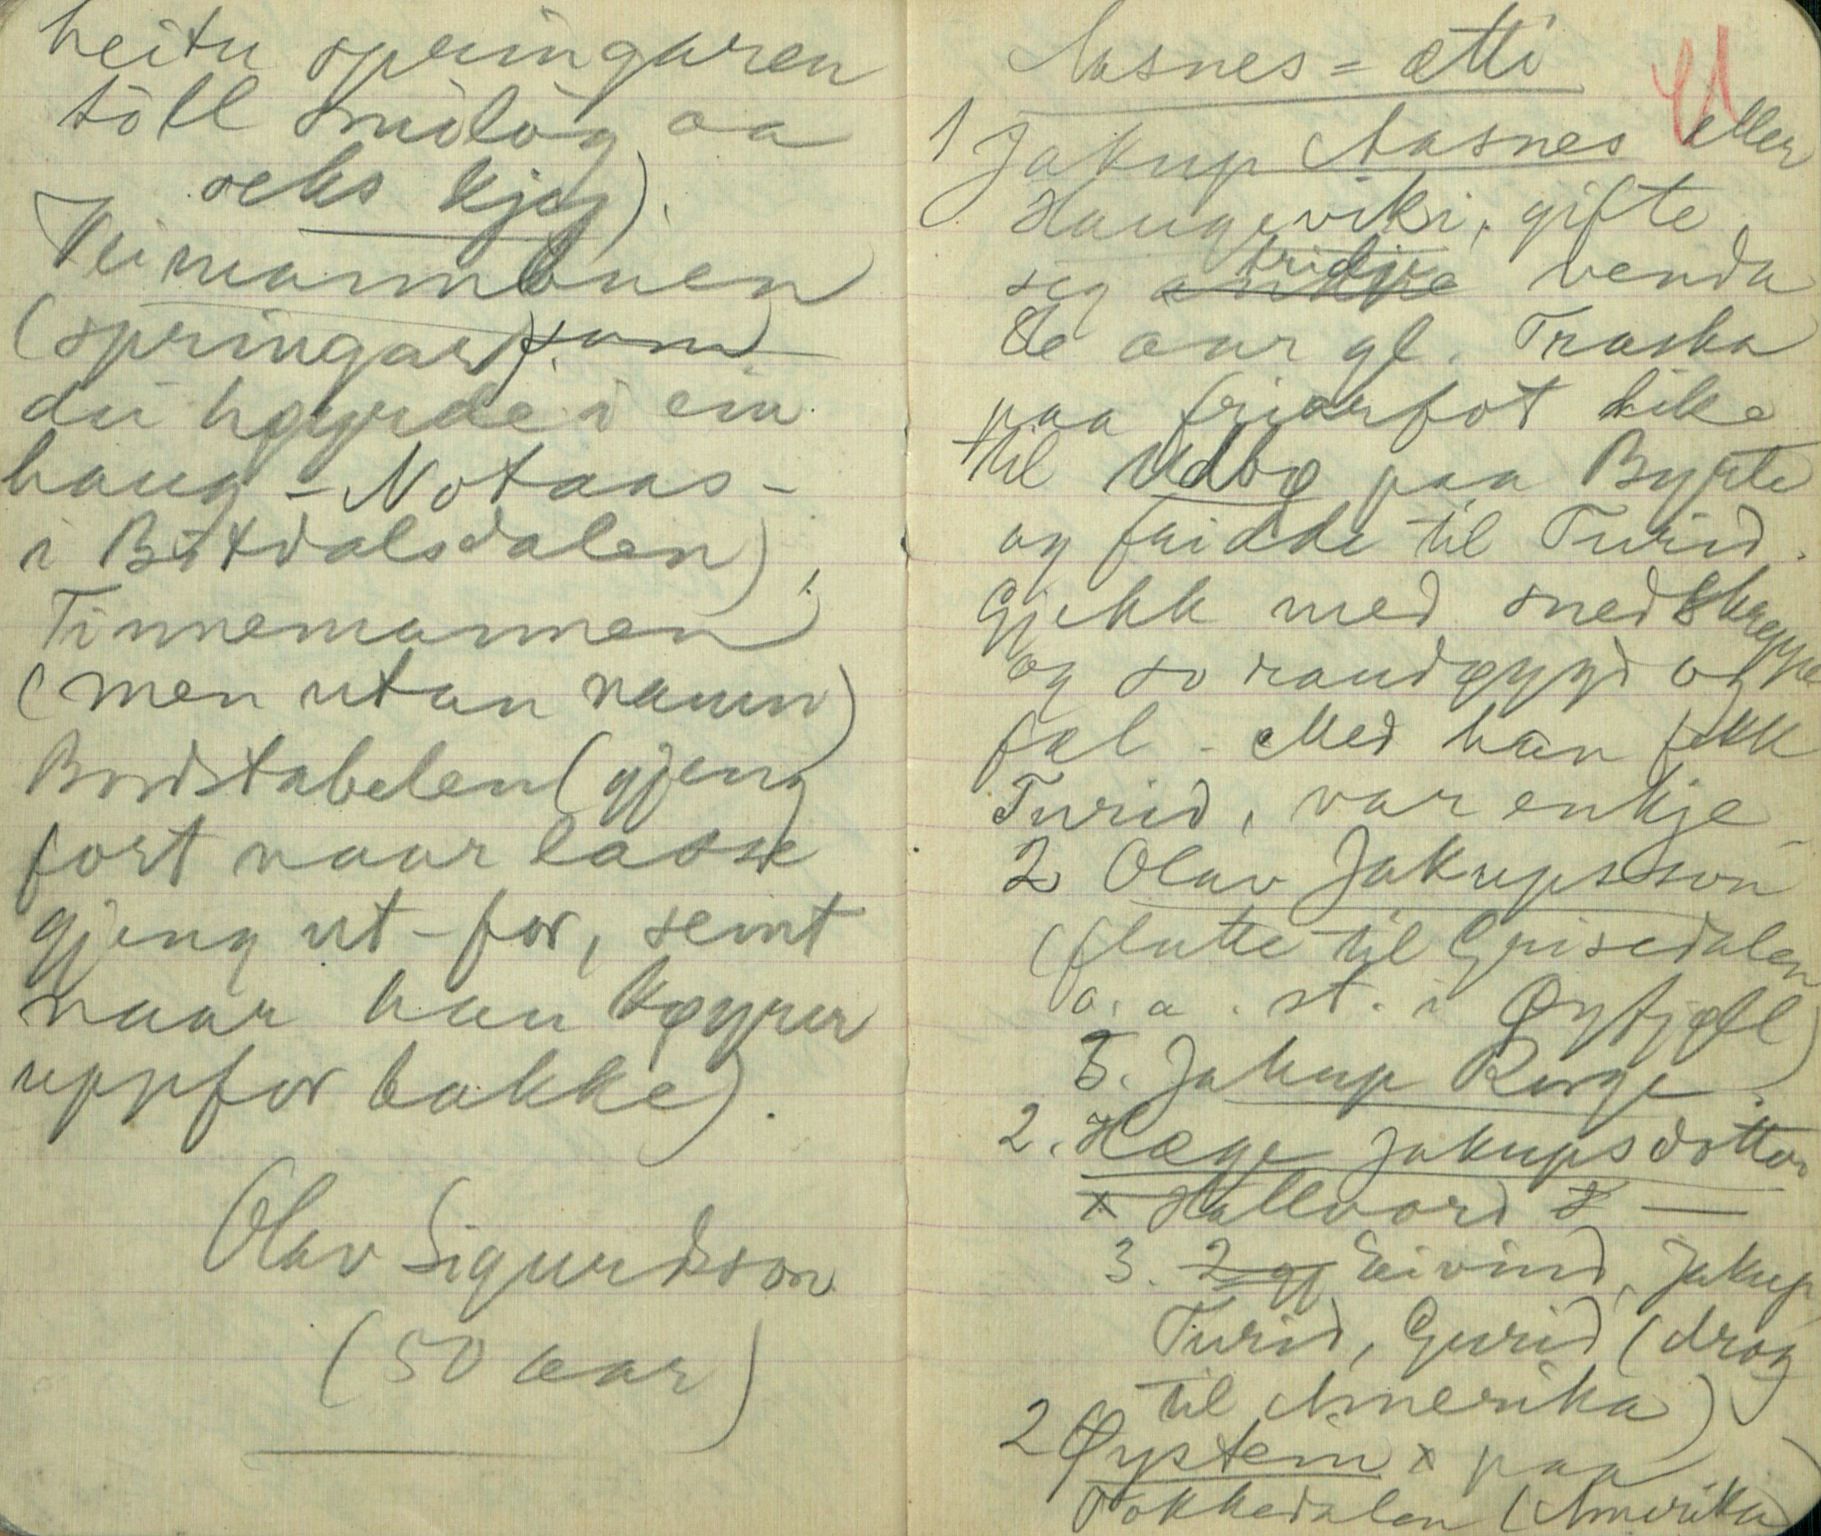 heitu springaren
töll smolög aa
seks kjög).
Veimannbonen
(springar) som
du høyrde i ein
haug - Notaas -
i Bitdalsdalen),
Tinnemannen
(men utan namn)
Bordstabelen (gjeng
fort naar lasse
gjeng ut-for, seint
naar han køyrer
uppfor bakke).
Olav Sigurdsson
(50 aar)
Aasnes = ætti
1 Jakup Aasnes eller
Haugeviki, gifte
seg tridje venda
80 aar gl. Traska
paa friarfot like
til Udbø paa Bygte
og fridde til Turid.
Gjekk med sned skreppe
og so raudøygd og
fæl. Med han fekk
Turid, var enkje
2 Olav Jakupsson
(flutte til Grisedalen
o. a. st. i Øyfjell)
3. Jakup Rorge.
2. Hæge Jakupsdotter
x Hallvord x —
3. 2 gj Eivind, Jakup,
Turid, Gurid (drog
til Amerika)
2 Øystein x paa
Tokkedalen (Amerika)